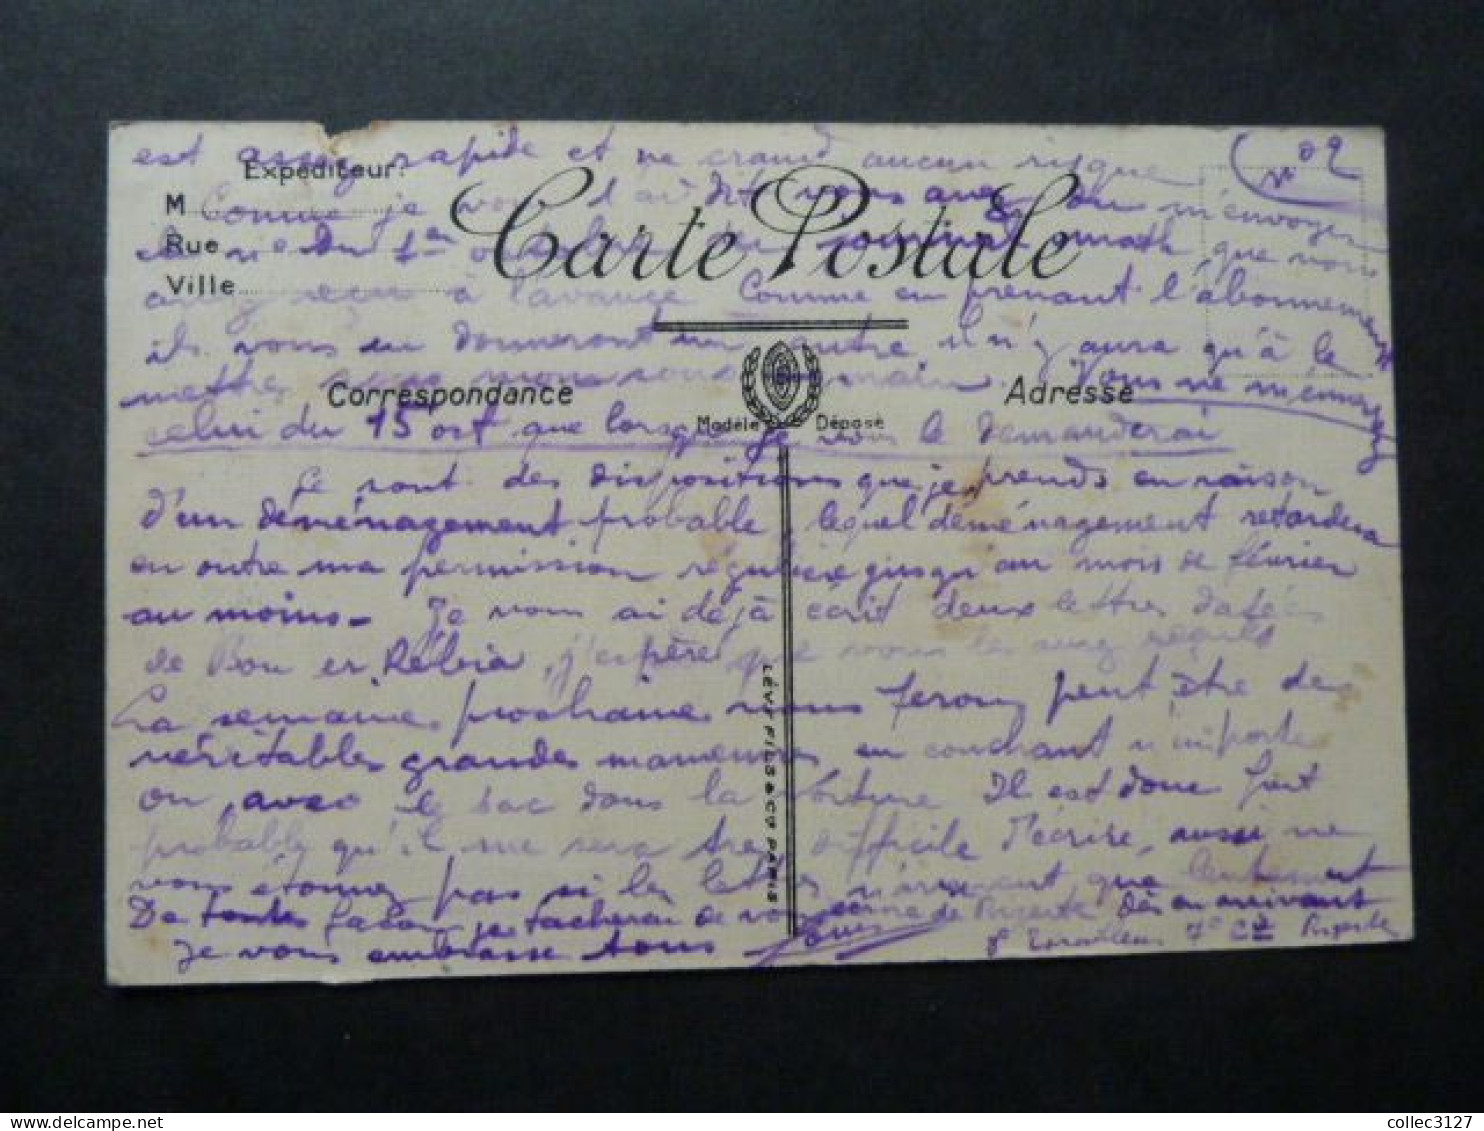 est assez rapide et ne craind aucun risque
n° 2
Expéditeur:
M
Rue
Ville
Carte Postale
Comme je vous l'ai dit vous avez du m'envoyer
du 1er du journal math que vous
avez reçu à l'avance Comme en prenant l'abonnement
ils vous en donneront un autre, il n'y aura qu'à le
mettre main. Vous ne m'enverrez
Correspondance
Adresse
Modèle Déposé
celui du 15 oct que lorsque je vous le demanderai
Ce sont des dispositions que je prends en raison
d'un déménagement probable, lequel déménagement retardera
en outre ma permission régulière jusqu'au mois de février
au moins. Je vous ai déjà écrit deux lettres datées
de Bou er Rebia, j'espère que vous les avez reçues
La semaine prochaine nous ferons peut être des
véritables grandes manœuvres en couchant n'importe
où, avec le sac dans la voiture Il est donc fort
probable qu'il me sera très difficile d'écrire, aussi ne
vous étonnez pas si les lettres n'arrivent que lentement
De toutes façons je tacherai de vous écrire de Bizerte dès en arrivant
Je vous embrasse tous Louis
8e Tirailleurs 7e Cie Bizerte
LÉVY FILS & Co PARIS
collec3127